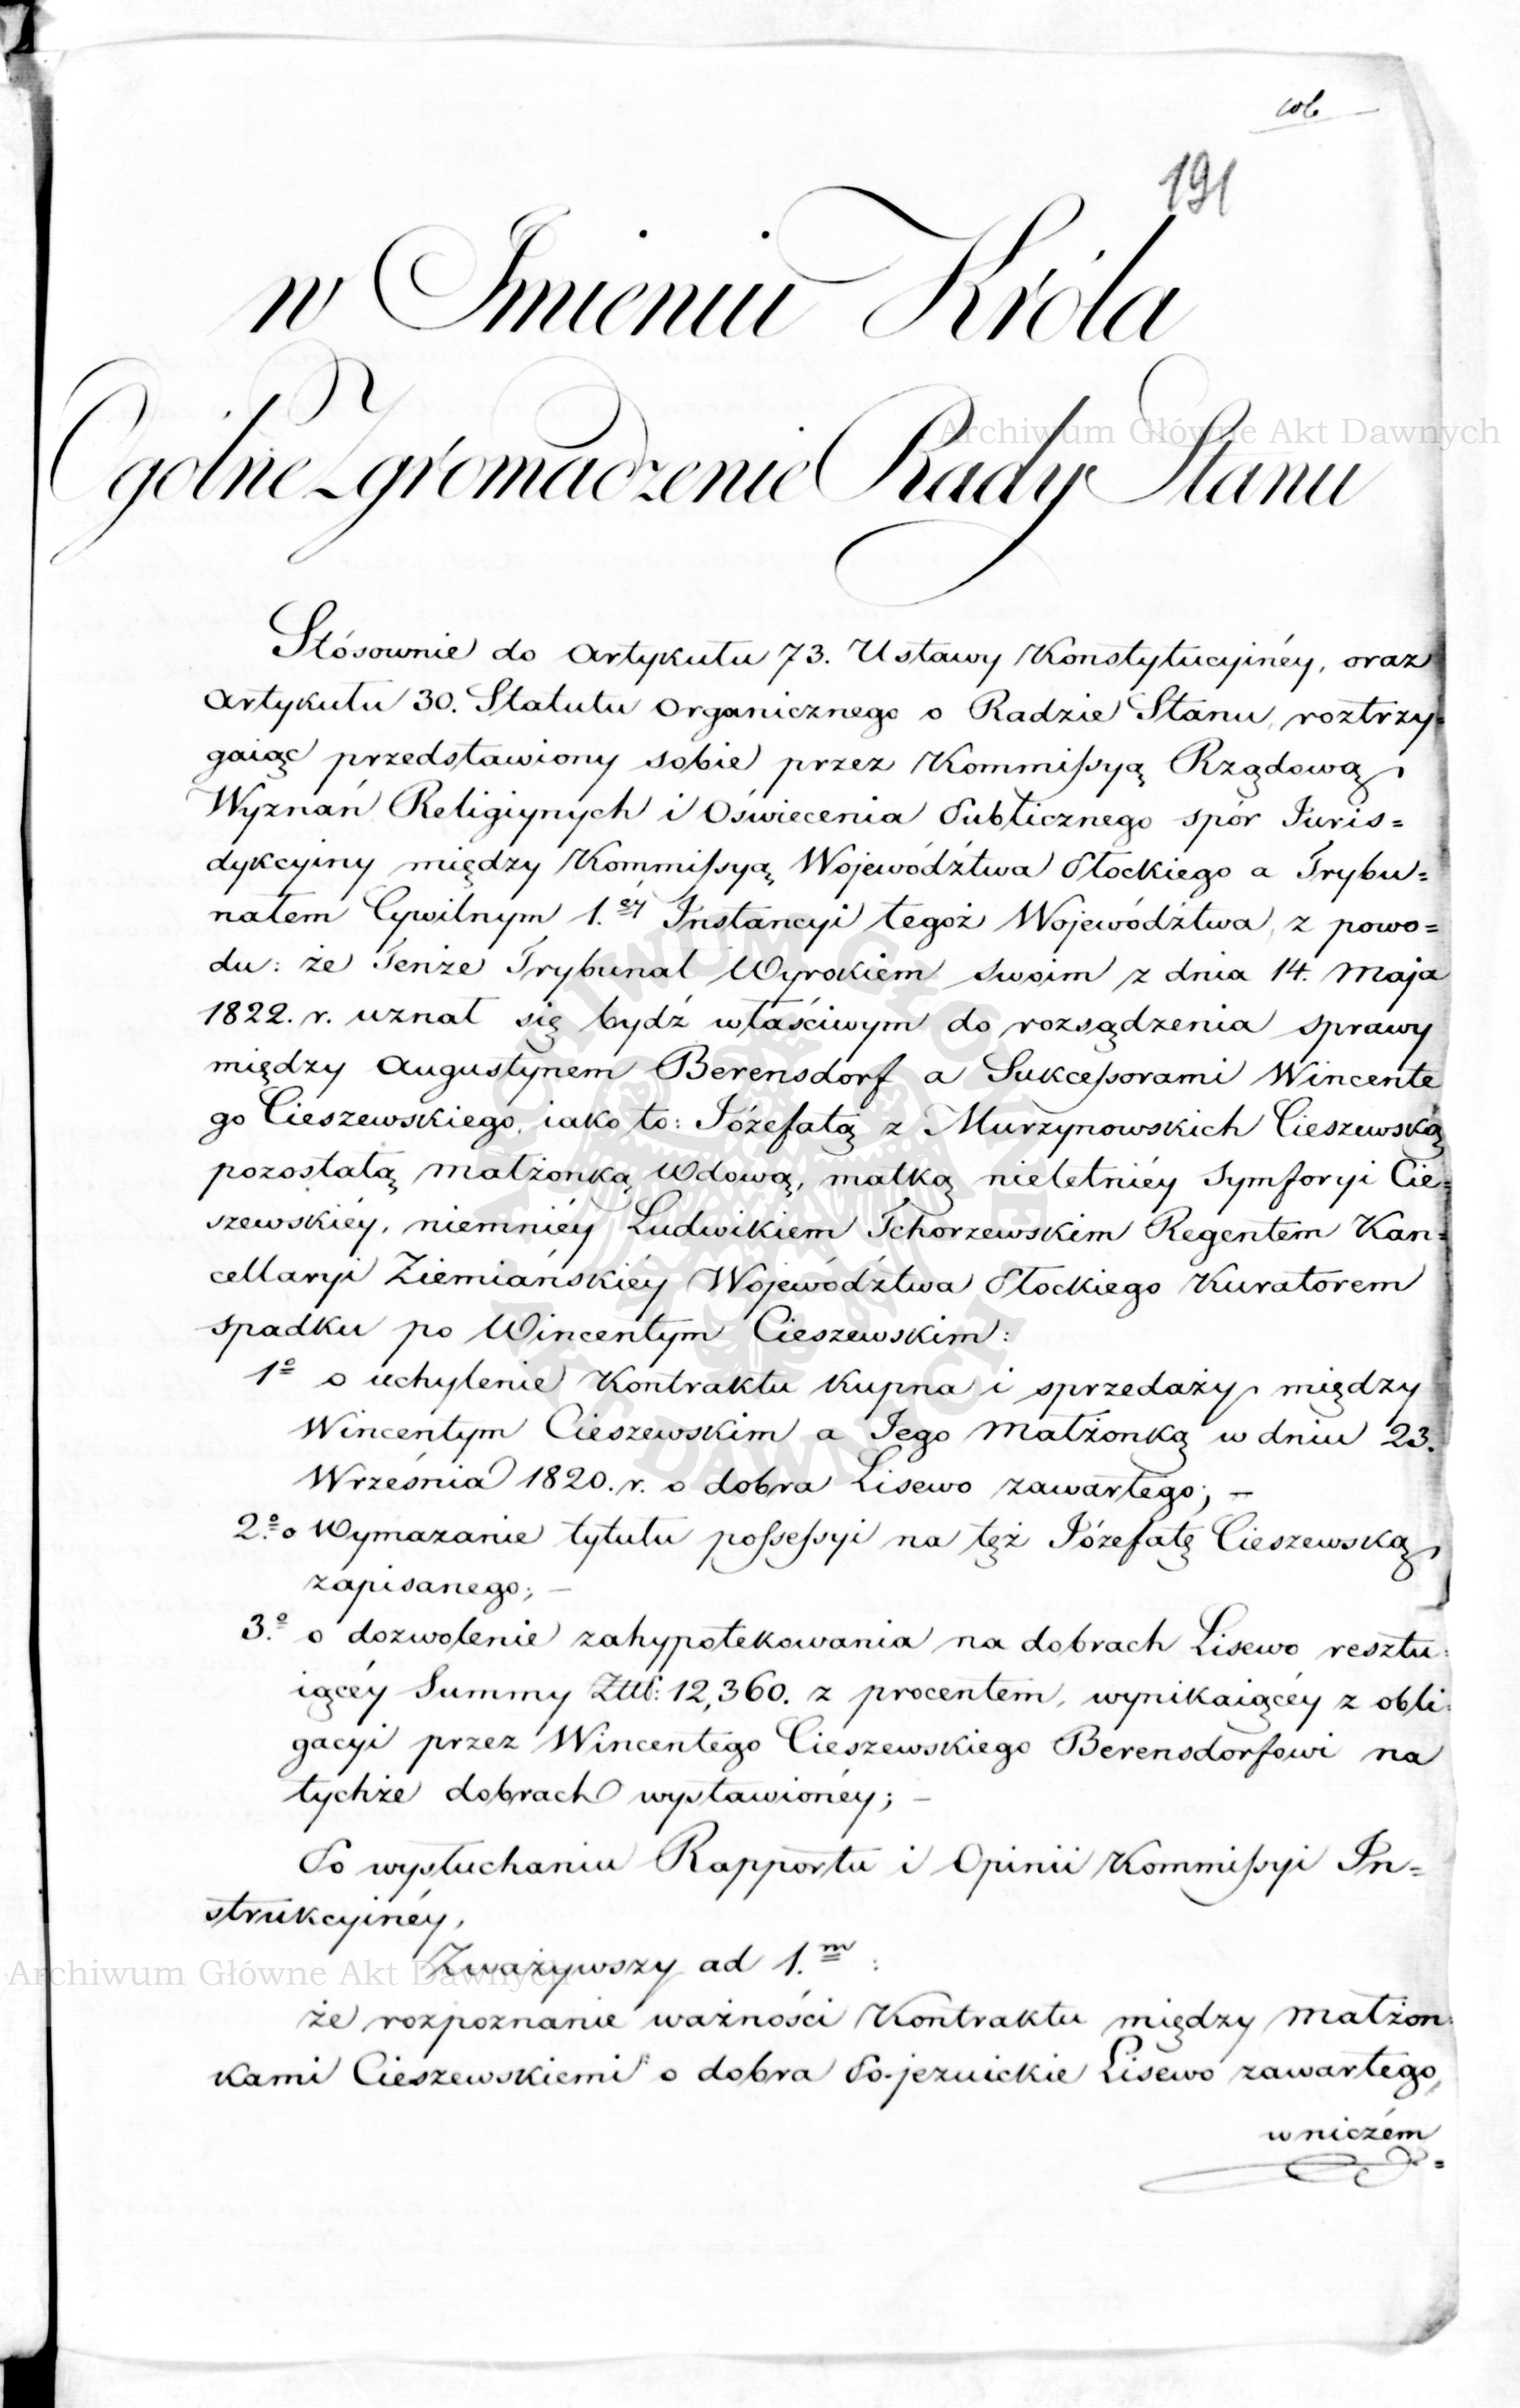 191
w Imieniu Króla
Ogólne Zgromadzenie Rady Stanu
Stósownie do Artykułu 73. Ustawy Konstytucyinéy, oraz
Artykułu 30. Statutu Organicznego o Radzie Stanu, roztrzy=
gaiąc przedstawiony sobie przez Kommissyą Rządową
Wyznań Religiynych i Oświecenia Publicznego spór Juris=
dykcyiny między Kommissyą Województwa Płockiego a Trybu=
nałem Cywilnym 1.éy Instancyi tegoż Województwa, z powo=
du: że Tenże Trybunał Wyrokiem swoim z dnia 14. Maja
1822. r. uznał się bydź właściwym do rozsądzenia sprawy
między Augustynem Berensdorf a Sukcessorami Wincente
go Cieszewskiego, iako to: Józefatą z Murzynowskich Cieszewską
pozostałą Małżonką Wdową, matką nieletniéy Symforyi Cie=
szewskiéy, niemniéy Ludwikiem Tchorzewskim Regentem Kan=
cellaryi Ziemiańskiéy Województwa Płockiego Kuratorem
spadku po Wincentym Cieszewskim:
1º o uchylenie Kontraktu Kupna i sprzedaży między
Wincentym Cieszewskim a Jego Małżonką w dniu 23.
Września 1820. r. o dobra Lisewo zawartego; —
2.º o Wymazanie tytułu possessyi na tęż Józefatę Cieszewską
zapisanego; —
3.º o dozwolenie zahypotekowania na dobrach Lisewo resztu=
iącéy Summy Złtl: 12,360. z procentem, wynikaiącéy z obli=
gacyi przez Wincentego Cieszewskiego Berensdorfowi na
tychże dobrach wystawionéy; —
Po wysłuchaniu Rapportu i Opinii Kommissyi In=
strukcyinéy,
Zważywszy ad 1.m :
że rozpoznanie ważności Kontraktu między Małżon=
kami Cieszewskiemi o dobra Po-jezuickie Lisewo zawartego,
w niczém
Archiwum Główne Akt Dawnych
Archiwum Główne Akt Dawnych
ARCHIWUM GŁÓWNE AKT DAWNYCH